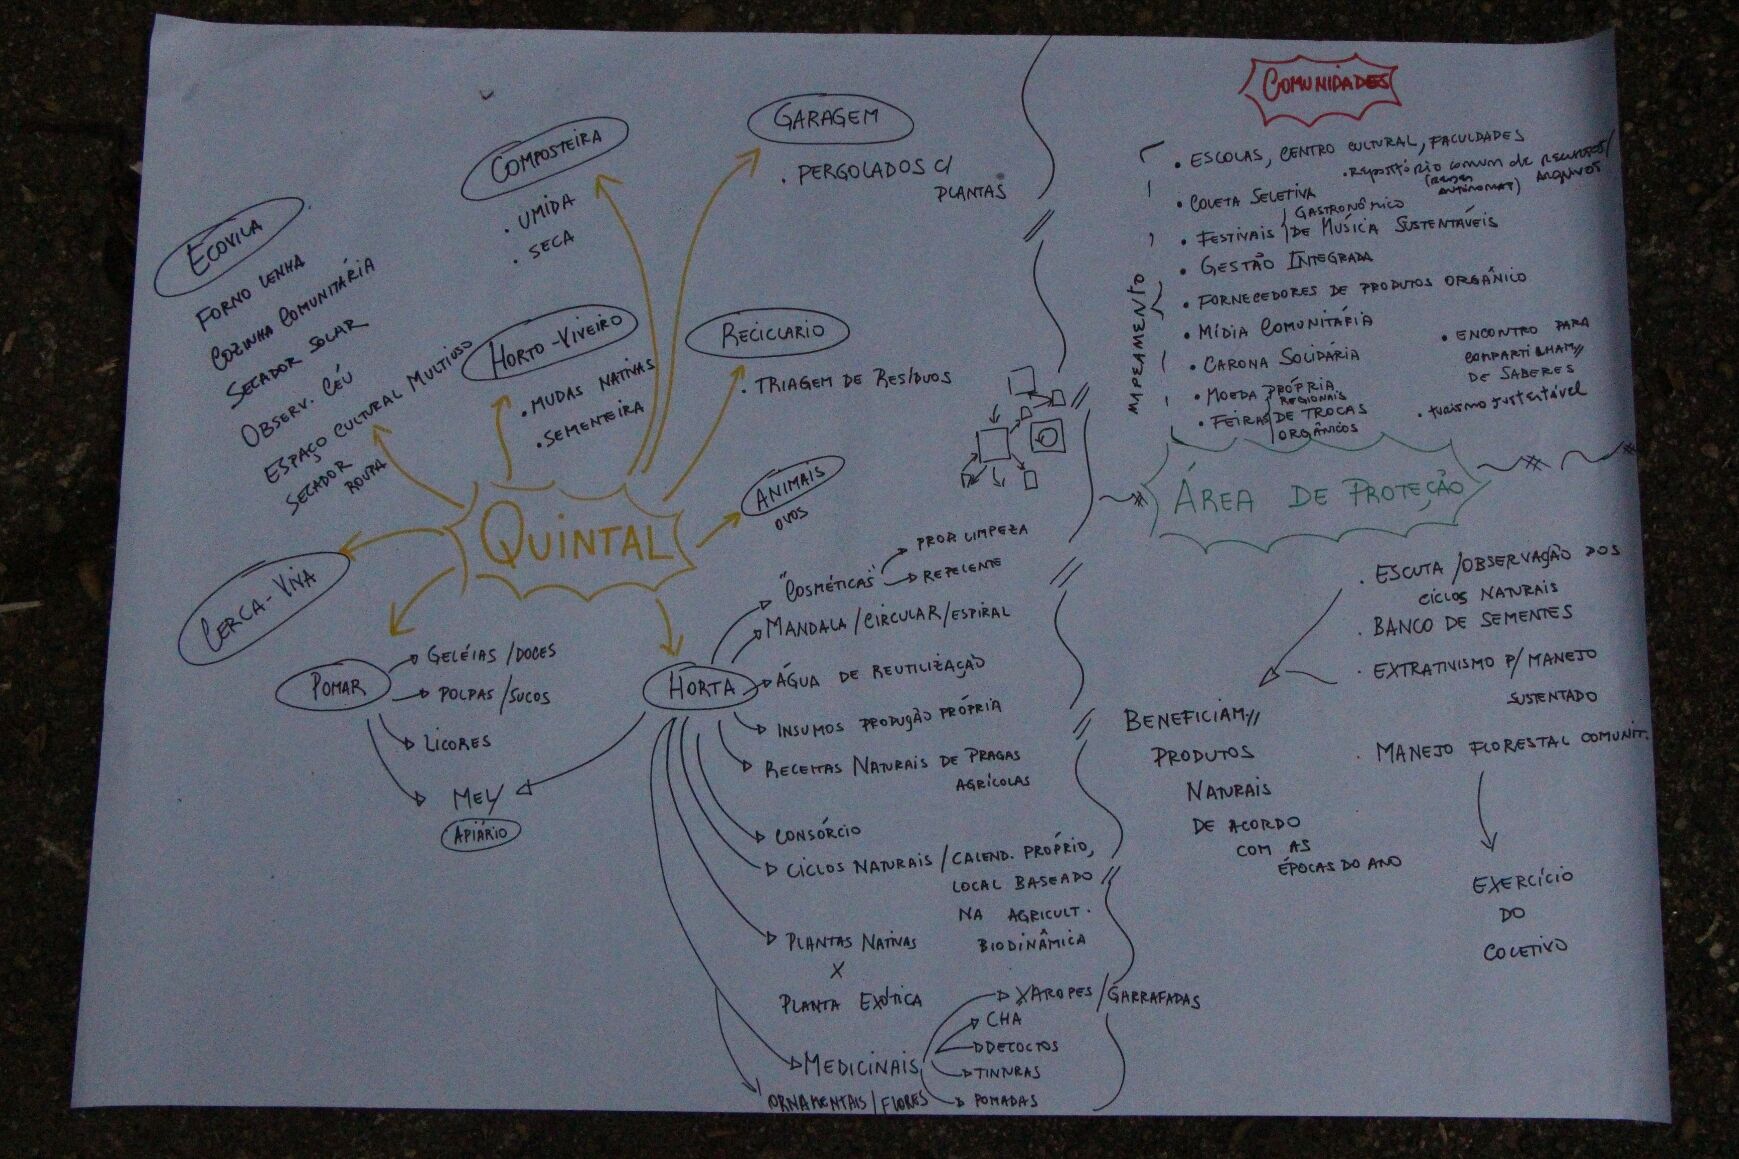 ECOVILA
FORNO LENHA
COZINHA COMUNITÁRIA
SECADOR SOLAR
OBSERV. CÉU
ESPAÇO CULTURAL MULTIUSO
SECADOR
ROUPA
COMPOSTEIRA
. UMIDA
. SECA
GARAGEM
. PERGOLADOS C/
PLANTAS
HORTO-VIVEIRO
. MUDAS NATIVAS
. SEMENTEIRA
RECICLARIO
. TRIAGEM DE RESÍDUOS
QUINTAL
ANIMAIS
OVOS
CERCA-VIVA
POMAR
GELÉIAS/DOCES
POLPAS/SUCOS
LICORES
MEL/
APIÁRIO
HORTA
"COSMÉTICAS"
PROR LIMPEZA
REPELENTE
MANDALA/CIRCULAR/ESPIRAL
ÁGUA DE REUTILIZAÇÃO
INSUMOS PRODUÇÃO PRÓPRIA
RECEITAS NATURAIS DE PRAGAS
AGRÍCOLAS
CONSÓRCIO
CICLOS NATURAIS/CALEND. PRÓPRIO,
LOCAL BASEADO
NA AGRICULT.
BIODINÂMICA
PLANTAS NATIVAS
X
PLANTA EXÓTICA
MEDICINAIS
XAROPES/GARRAFADAS
CHA
DECOCTOS
TINTURAS
POMADAS
ORNAMENTAIS/FLORES
COMUNIDADES
MAPEAMENTO
. ESCOLAS, CENTRO CULTURAL, FACULDADES
. REPOSITÓRIO COMUM DE RECURSOS/
ARQUIVOS
. COLETA SELETIVA
GASTRONÔMICO
. FESTIVAIS DE MÚSICA SUSTENTÁVEIS
. GESTÃO INTEGRADA
. FORNECEDORES DE PRODUTOS ORGÂNICO
. MÍDIA COMUNITÁRIA
. CARONA SOLIDÁRIA
. MOEDA PRÓPRIA
REGIONAIS
. FEIRAS DE TROCAS
ORGÂNICOS
. ENCONTRO PARA
COMPARTILHAM//
DE SABERES
. turismo sustentável
ÁREA DE PROTEÇÃO
. ESCUTA/OBSERVAÇÃO DOS
CICLOS NATURAIS
. BANCO DE SEMENTES
. EXTRATIVISMO P/ MANEJO
SUSTENTADO
. MANEJO FLORESTAL COMUNIT.
BENEFICIAM//
PRODUTOS
NATURAIS
DE ACORDO
COM AS
ÉPOCAS DO ANO
EXERCÍCIO
DO
COLETIVO